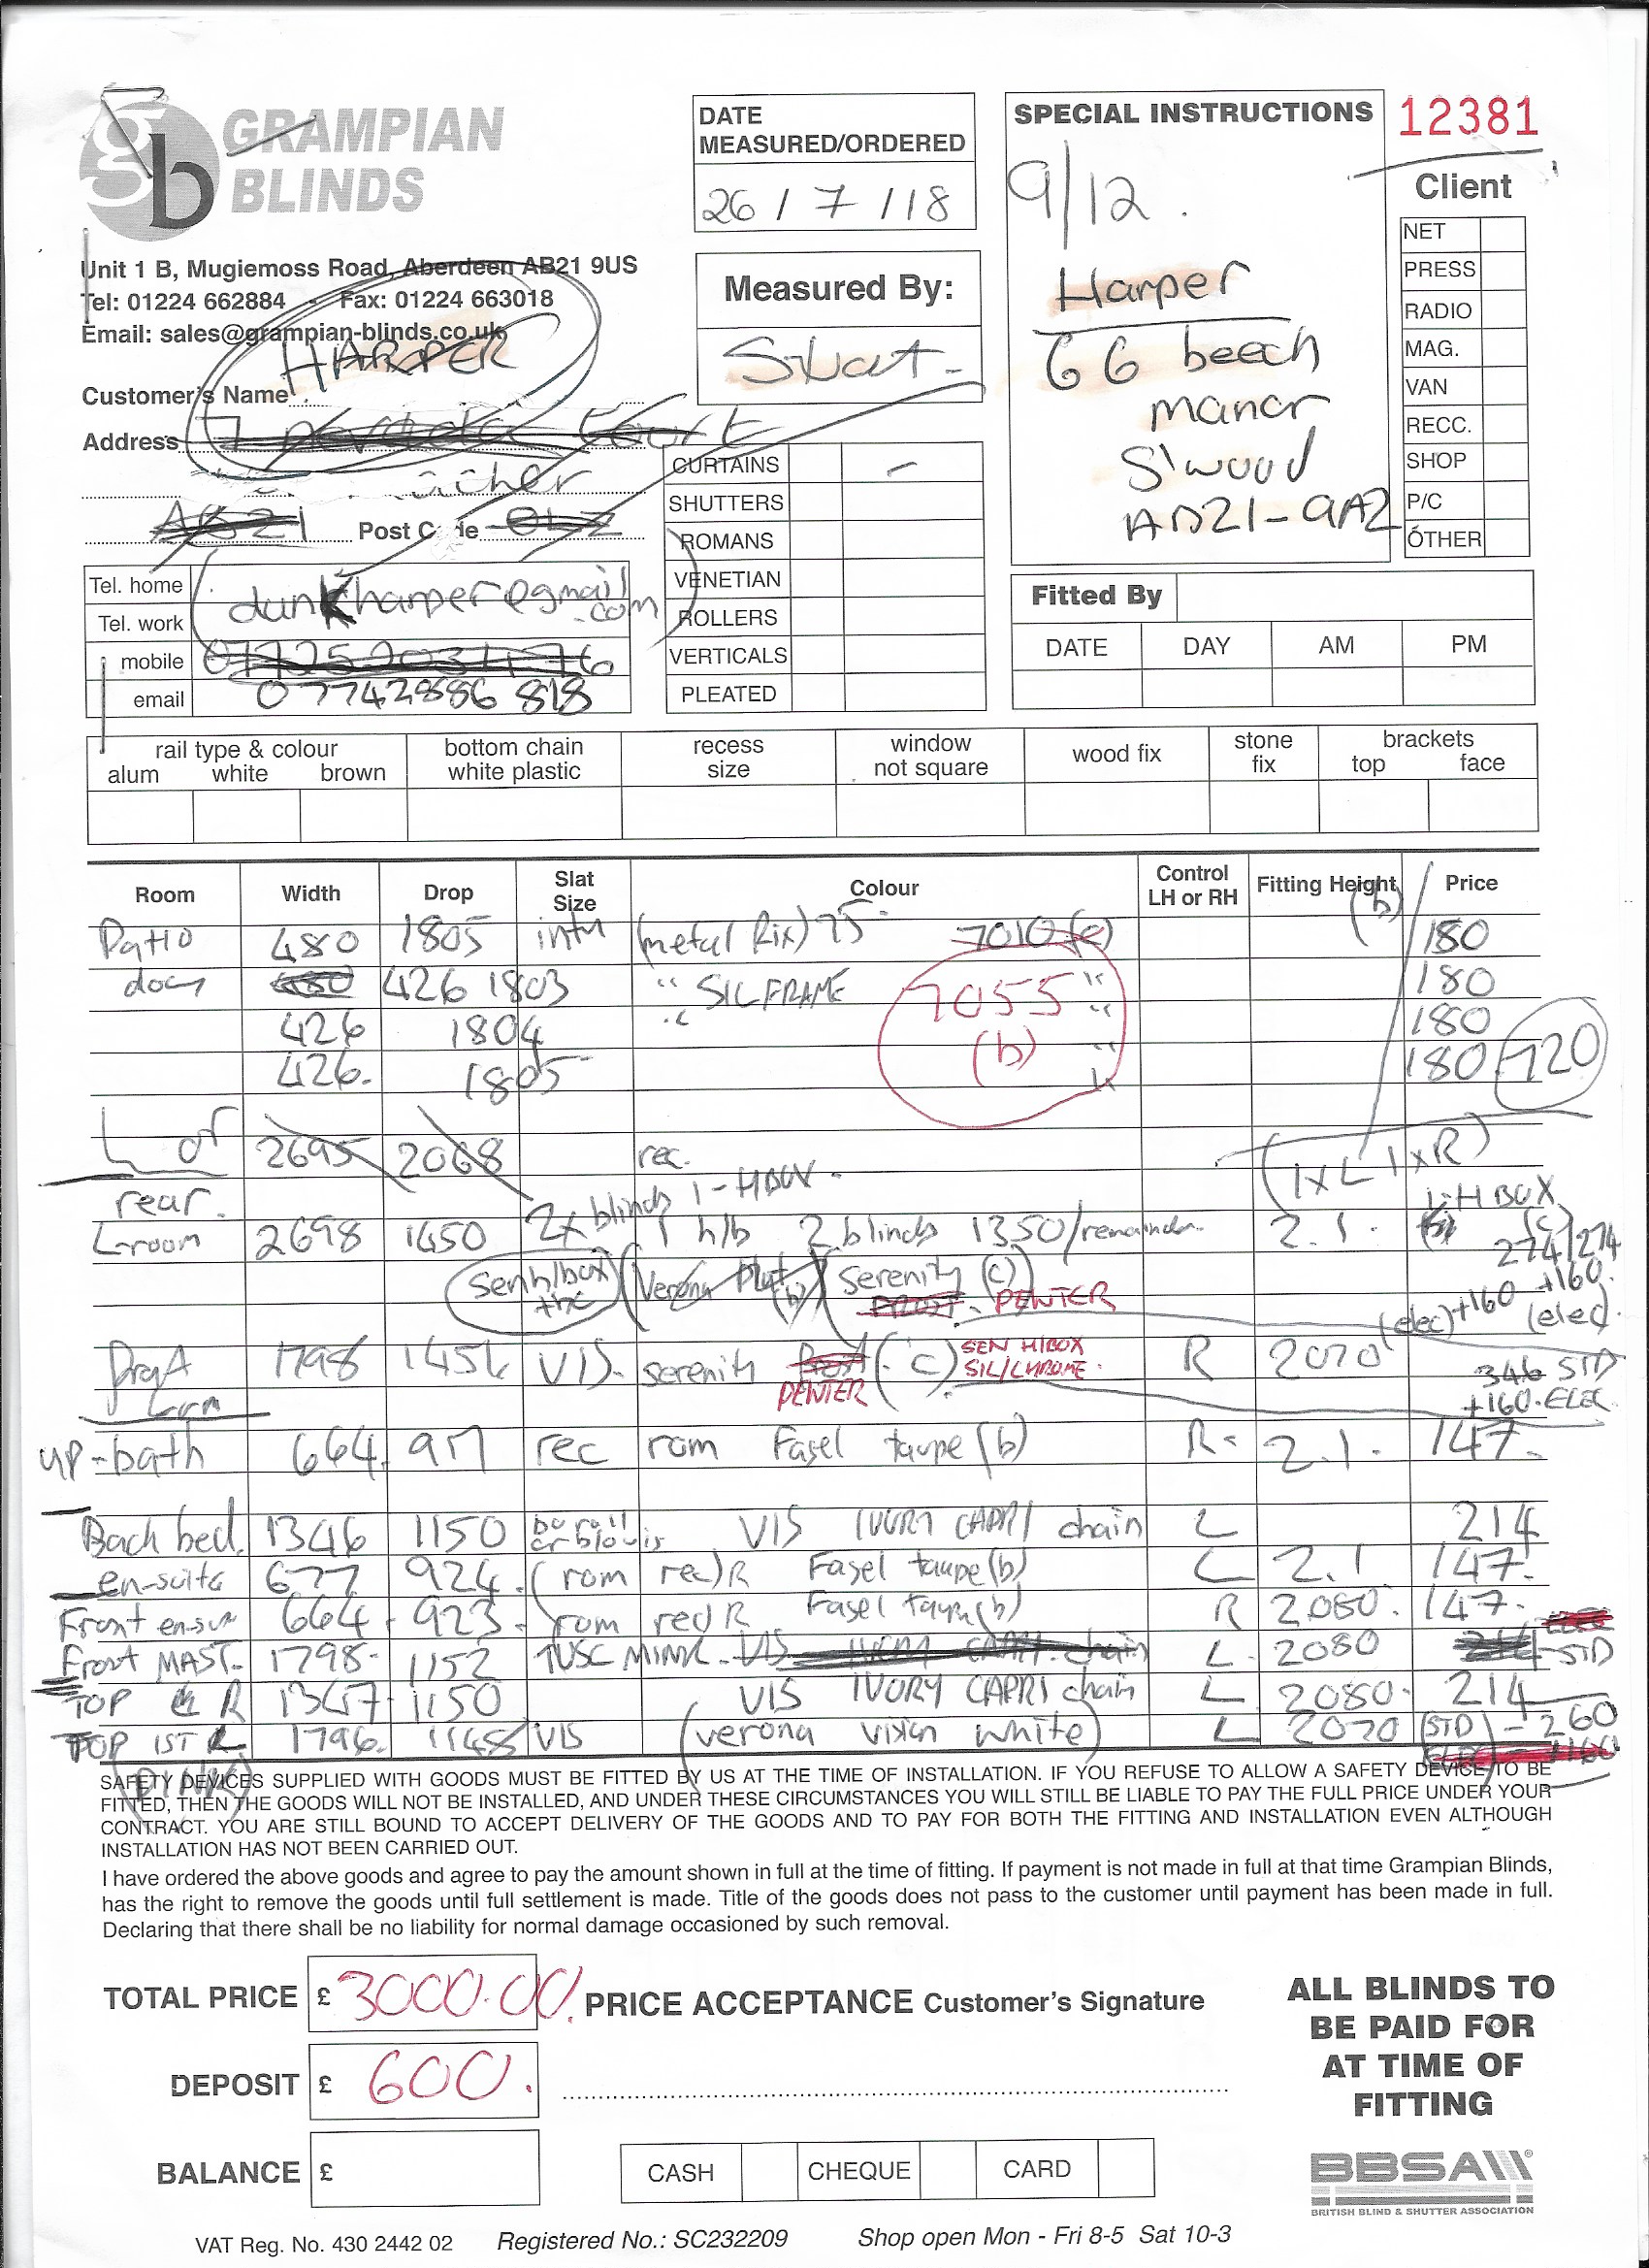 gb GRAMPIAN BLINDS
Unit 1 B, Mugiemoss Road, Aberdeen AB21 9US
Tel: 01224 662884 - Fax: 01224 663018
Email: sales@grampian-blinds.co.uk
Customer's Name HARPER
Address 7 Court
AB21 Post C de
Tel. home dunkharper@gmail
Tel. work .com
mobile
email 07742886 818
DATE
MEASURED/ORDERED
26 / 7 / 18
Measured By:
CURTAINS
SHUTTERS
ROMANS
VENETIAN
ROLLERS
VERTICALS
PLEATED
SPECIAL INSTRUCTIONS
9/12.
Harper
66 beech
manor
S'wood
AB21-9AZ
12381
Client
NET
PRESS
RADIO
MAG.
VAN
RECC.
SHOP
P/C
OTHER
Fitted By
DATE DAY AM PM
rail type & colour bottom chain recess window wood fix stone brackets
alum white brown white plastic size not square fix top face
Room Width Drop Slat Size Colour Control LH or RH Fitting Height Price
Patio 480 1805 intu (metal fix) 25 7010 (c) (b) 180
door 480 426 1803 " SILFRAME 7055 " 180
426 1804 " (b) " 180
426. 1805 " 180 720
L of 2695 2068 rec. (1xL 1xR)
rear. 2x blinds 1-HBOX. 1-HBOX
L-room 2698 1450 1 h/b 2 blinds 1350/remainder. 2.1. (c) 274/274
sen h/box (Verona (b)) Serenity (c) PEWTER (elec) +160 +160. (elec).
1798 1454 VIS. serenity PEWTER (c) SEN H/BOX SIL/CHROME. R 2070 346 STD
+160.ELEC
up-bath 664. 917 rec rom Fasel taupe (b) R- 2.1. 147.
Back bed. 1346 1150 VIS IVORY CAPRI chain L 214
en-suite 677 924. (rom rec) R Fasel taupe (b) L 2.1 147.
Front ensu 664. 923. rom rec R Fasel taupe (b) R 2080. 147.
Front MAST. 1798. 1152 TUSC MINK. VIS IVORY CAPRI chain L. 2080 214 STD
TOP R 1347 1150 VIS IVORY CAPRI chain L 2080. 214
TOP 1ST L 1796. 1148 VIS (verona vixen white) L 2070 (STD) - 260
(PINK)
SAFETY DEVICES SUPPLIED WITH GOODS MUST BE FITTED BY US AT THE TIME OF INSTALLATION. IF YOU REFUSE TO ALLOW A SAFETY DEVICE TO BE
FITTED, THEN THE GOODS WILL NOT BE INSTALLED, AND UNDER THESE CIRCUMSTANCES YOU WILL STILL BE LIABLE TO PAY THE FULL PRICE UNDER YOUR
CONTRACT. YOU ARE STILL BOUND TO ACCEPT DELIVERY OF THE GOODS AND TO PAY FOR BOTH THE FITTING AND INSTALLATION EVEN ALTHOUGH
INSTALLATION HAS NOT BEEN CARRIED OUT.
I have ordered the above goods and agree to pay the amount shown in full at the time of fitting. If payment is not made in full at that time Grampian Blinds,
has the right to remove the goods until full settlement is made. Title of the goods does not pass to the customer until payment has been made in full.
Declaring that there shall be no liability for normal damage occasioned by such removal.
TOTAL PRICE £ 3000.00. PRICE ACCEPTANCE Customer's Signature
DEPOSIT £ 600.
BALANCE £
CASH CHEQUE CARD
ALL BLINDS TO
BE PAID FOR
AT TIME OF
FITTING
BBSA
BRITISH BLIND & SHUTTER ASSOCIATION
VAT Reg. No. 430 2442 02 Registered No.: SC232209 Shop open Mon - Fri 8-5 Sat 10-3